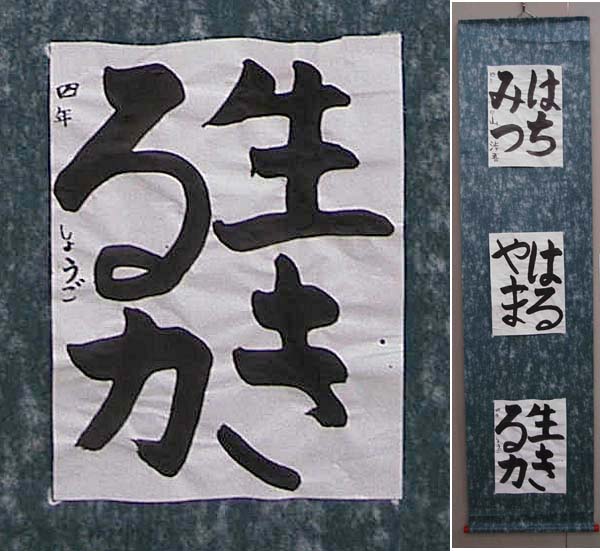 生き
る力
四年　しょうご
はち
みつ
はる
やま
生き
る力